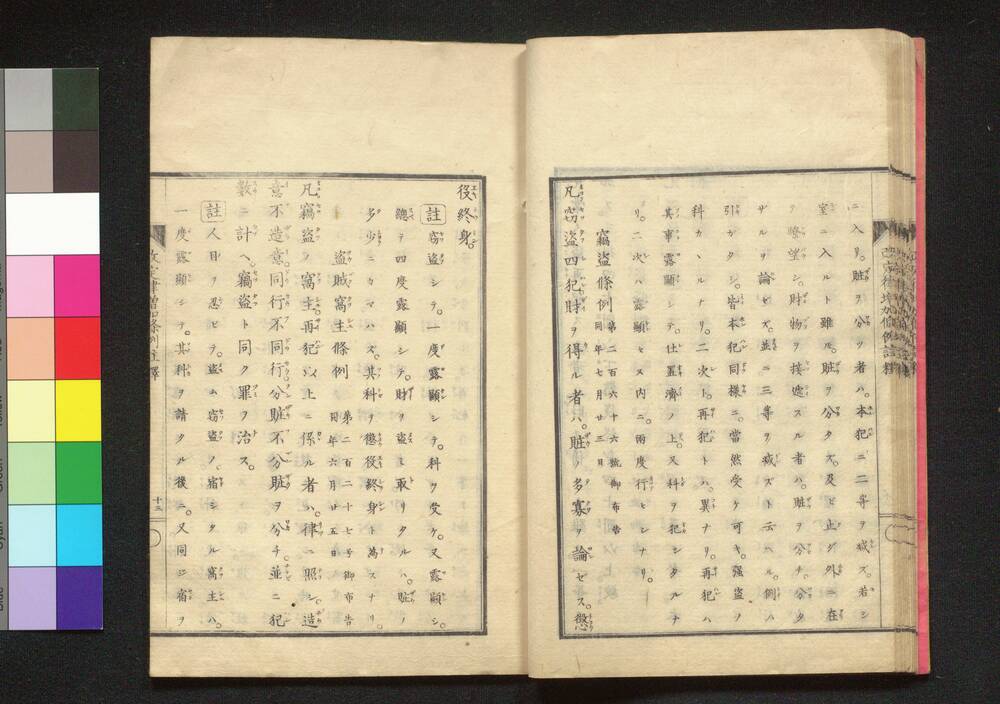 ニ入リ。賍ヲ分ツ者ハ。本犯ニ二等ヲ减ズ。若シ
室ニ入ルト雖ㇽ。賍ヲ分タズ。及ビ止ダ外ニ在
テ瞭望シ。財物ヲ接遞スル者ハ。賍ヲ分チ。分タ
ザルヲ論ゼズ。並ニ三等ヲ减ズト云ヘル。例ハ
引ガタシ。皆本犯同様ニ。當然受ケ可キ。强盗ノ
科カヽルナリ。二次ト。再犯トハ。異ナリ。再犯ハ
其事露顯シテ。仕置濟ノ上。又科ヲ犯シタルナ
リ。二次ハ露顯セヌ内ニ。兩度行ヒシナリ。
竊盗條例 第二百六十六號御布告
同年七月廿三日
凡窃盗四犯財ヲ得ル者ハ。賍ノ多寡ヲ論セス。懲
役終身。
註 窃盗シテ。一度露顯シテ。科ヲ受ケ。又露顯シ。
總テ四度露顯シテ。財ヲ盗ミ取リタルハ。賍ノ
多少ニカマハズ。其科ヲ懲役終身ト為スナリ。
盗賊窩主條例 第二百二十七号御布告
同年六月廿五日
凡竊盗ノ窩主。再犯以上ニ係ル者ハ。律ニ照シ。造
意不造意。同行不同行分賍不分賍ヲ分チ。並ニ犯
數ニ計ヘ。竊盗ト同ク罪ヲ治ス。
註 人目ヲ忍ビテ。盗ム窃盗ノ。宿シタル窩主ハ。
一度露顯シテ。其科ヲ請タル後ニ。又同ニ宿ヲ
十三